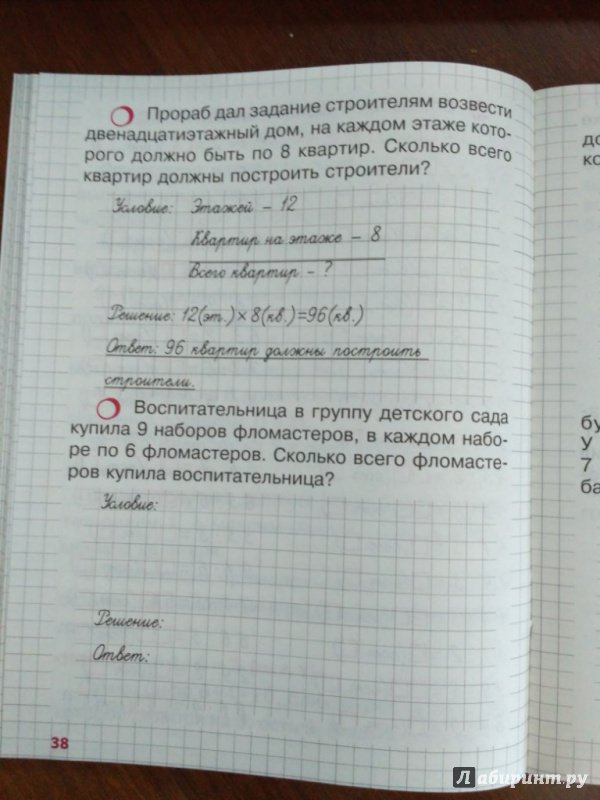 Прораб дал задание строителям возвести
двенадцатиэтажный дом, на каждом этаже кото-
рого должно быть по 8 квартир. Сколько всего
квартир должны построить строители?
Условие: Этажей – 12
Квартир на этаже – 8
Всего квартир – ?
Решение: 12(эт.)×8(кв.)=96(кв.)
Ответ: 96 квартир должны построить
строители.
Воспитательница в группу детского сада
купила 9 наборов фломастеров, в каждом набо-
ре по 6 фломастеров. Сколько всего фломасте-
ров купила воспитательница?
Условие:
Решение:
Ответ:
38
до
ко
бу
У
7
ба
Лабиринт.ру